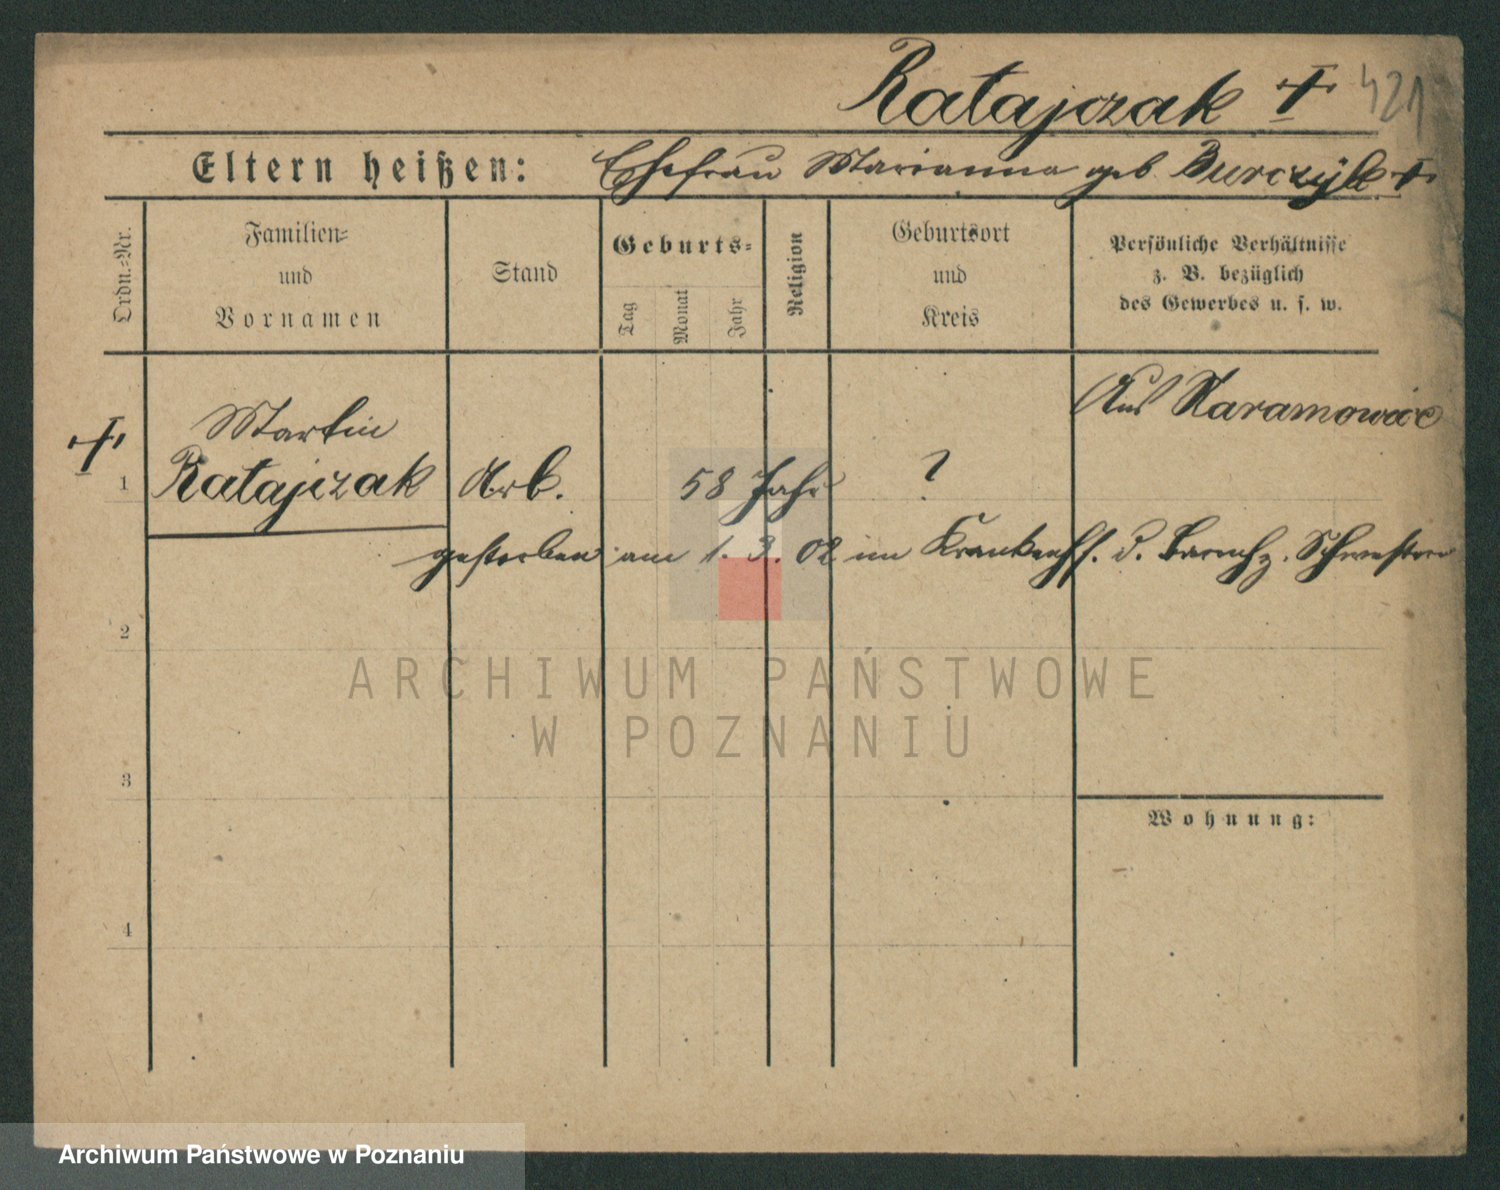 Ratajczak + 421
Eltern heißen: Ehefrau Marianna geb Burczyk +
Ordn.-Nr.
Familien-
und
Vornamen
Stand
Geburts-
Tag
Monat
Jahr
Religion
Geburtsort
und
Kreis
Persönliche Verhältnisse
z. B. bezüglich
des Gewerbes u. s. w.
Aus Naramowice
+ Martin
1 Ratajczak Arb. 58 Jahr ?
gestorben am 1. 3. 02 im Krankenhs. d. Barmhz. Schwestern
2
ARCHIWUM PAŃSTWOWE
W POZNANIU
3
Wohnung:
4
Archiwum Państwowe w Poznaniu